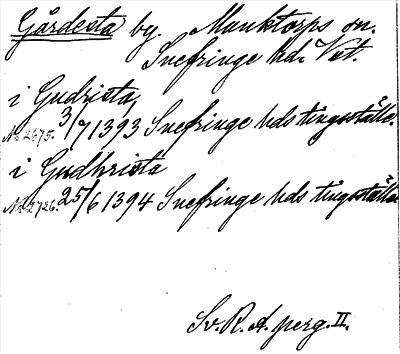 Gårdesta by. Munktorps sn.
Snefringe hd. Vst.
i Gudrista,
No 2675. 3/7 1393 Snefringe hds tingsställe.
i Gudhrista
No 2726. 25/6 1394 Snefringe hds tingsställe
Sv. R. A. perg. II.